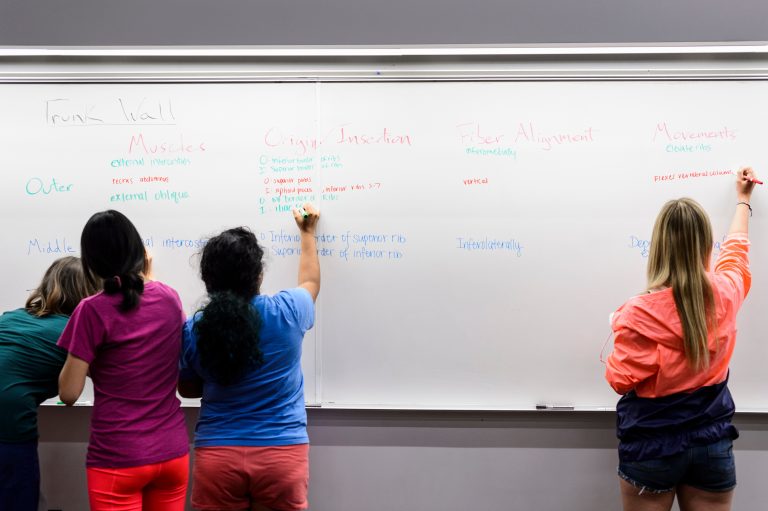 Trunk Wall
Muscles Origin/Insertion Fiber Alignment Movements
external intercostals O: inferior border of ribs inferomedially Elevate ribs
I: Superior border of ribs
Outer rectus abdominus O: superior pubis vertical Flexes vertebral column
I: xiphoid process, inferior ribs 5-7
external oblique O: border of Ribs
I: iliac
Middle intercostals O: Inferior border of superior rib Inferolaterally
Superior border of inferior rib